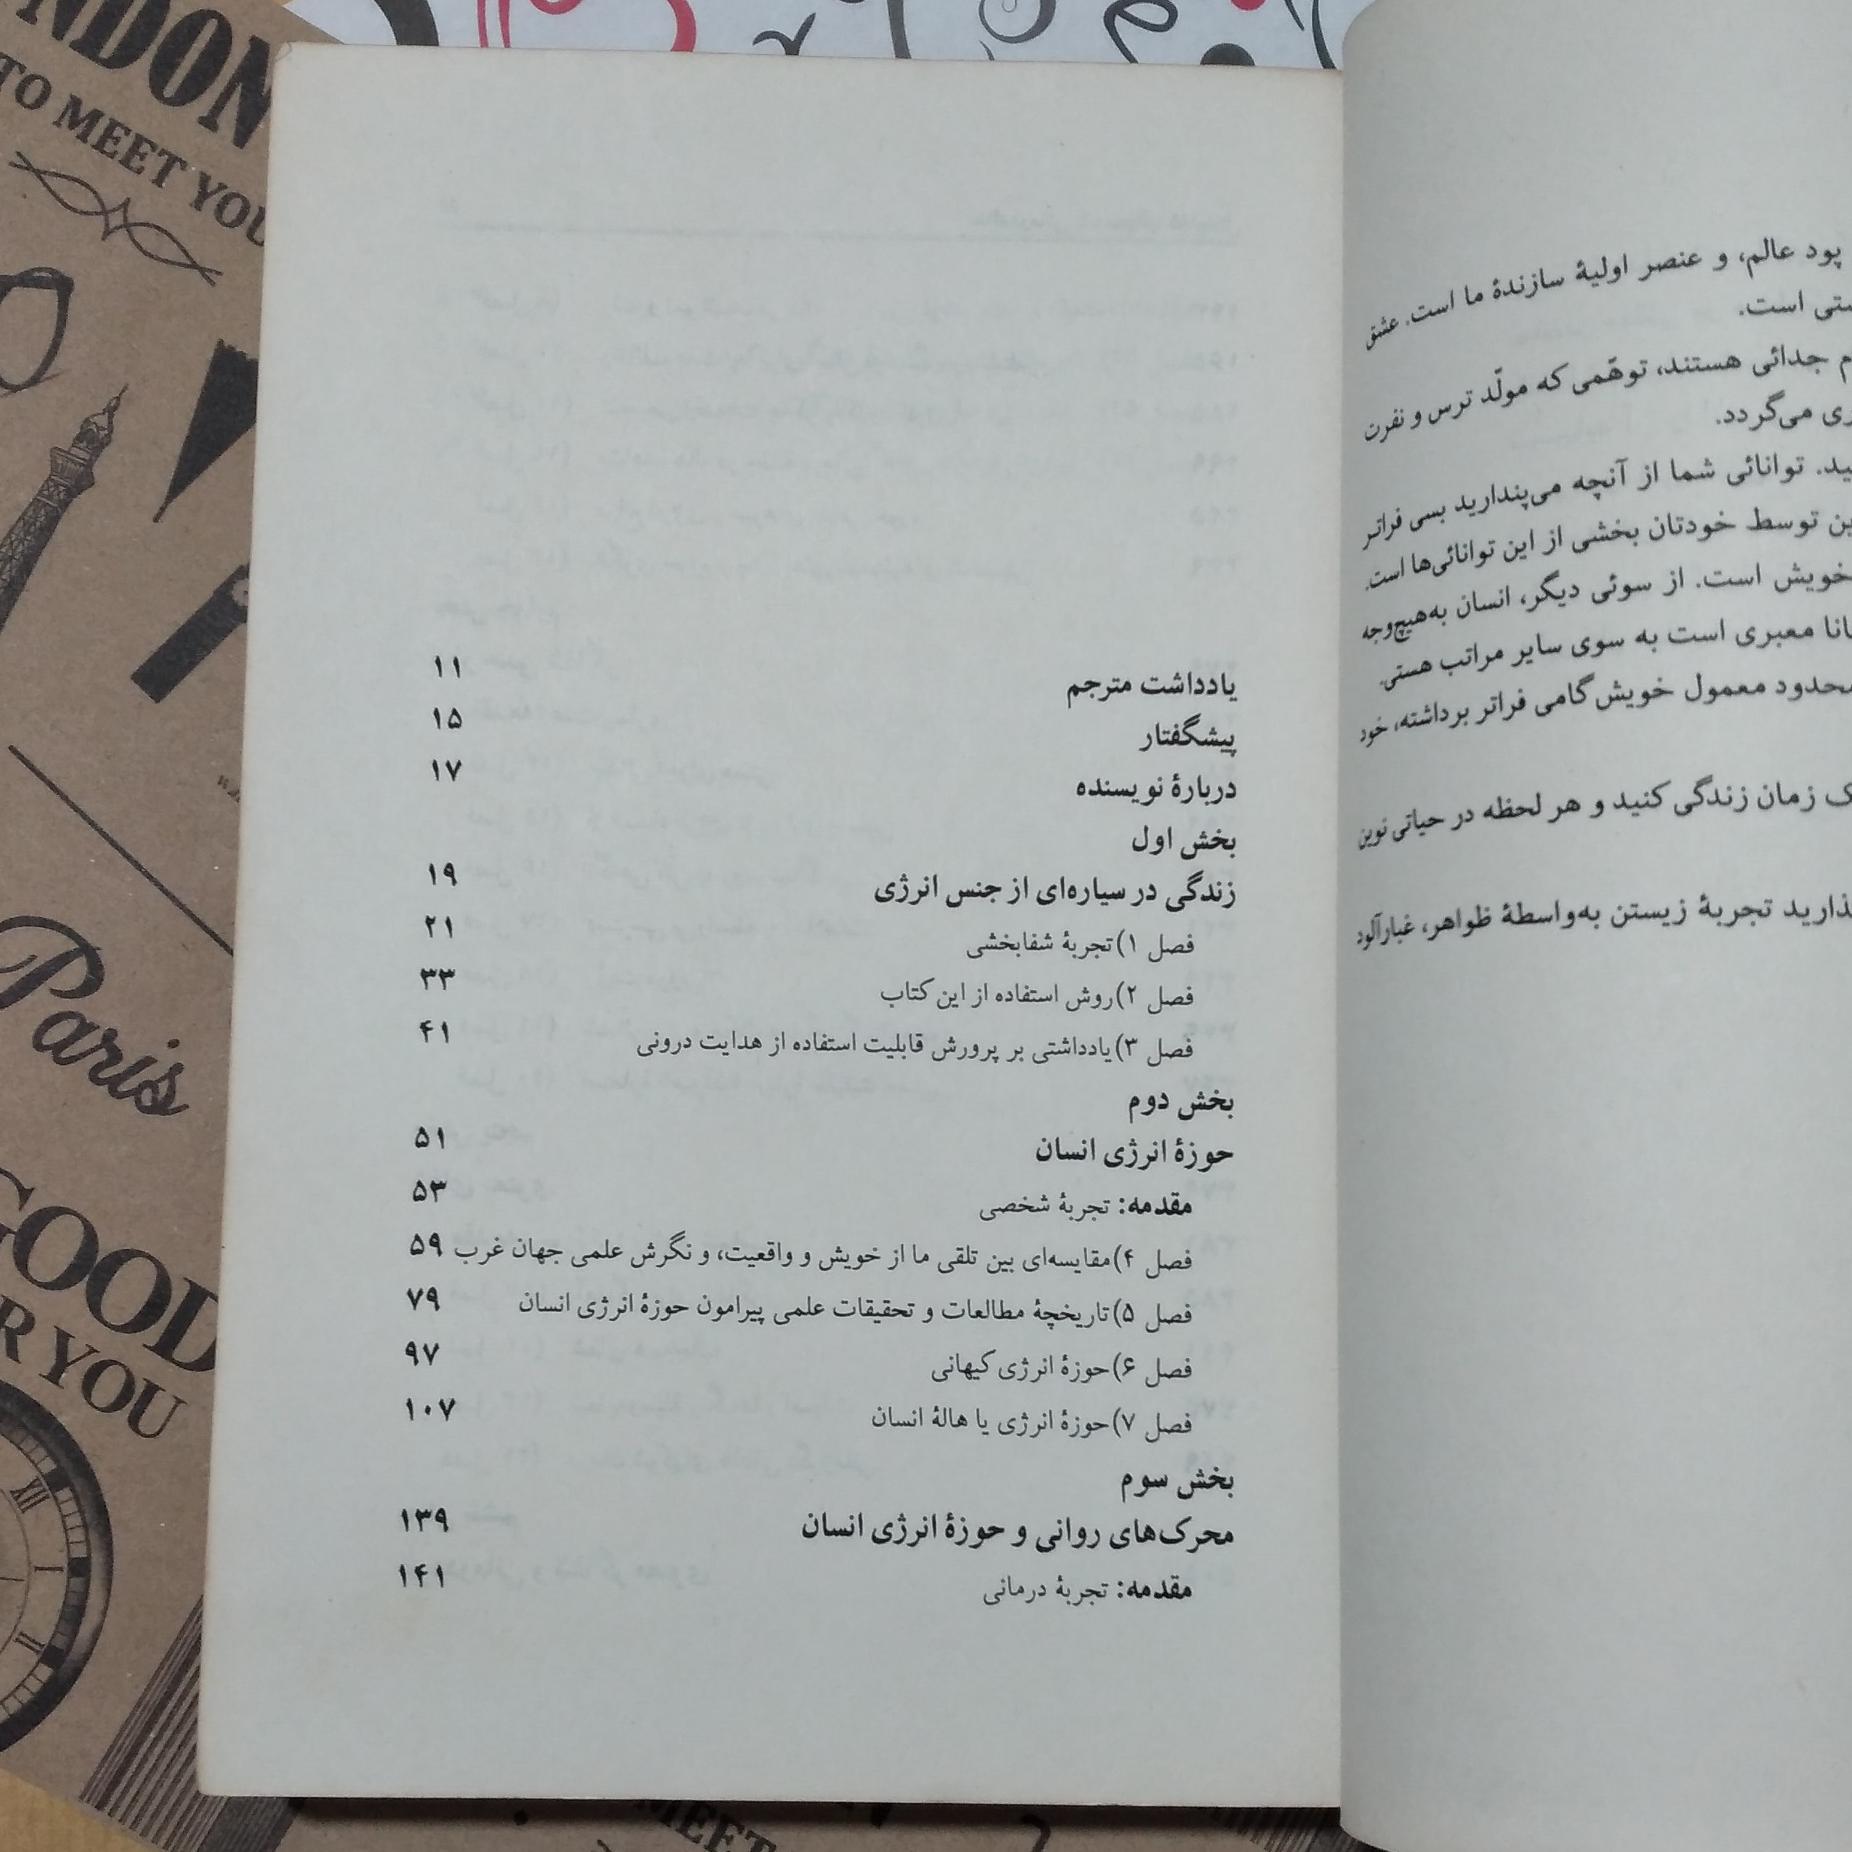 پود عالم، و عنصر اولیهٔ سازندهٔ ما است. عشق
است.
جدائی هستند، توهّمی که مولّد ترس و نفرت
می‌گردد.
توانائی شما از آنچه می‌پندارید بسی فراتر
توسط خودتان بخشی از این توانائی‌ها است.
خویش است. از سوئی دیگر، انسان به‌هیچ‌وجه
معبری است به سوی سایر مراتب هستی.
محدود معمول خویش گامی فراتر برداشته، خود
زمان زندگی کنید و هر لحظه در حیاتی نوین
تجربهٔ زیستن به‌واسطهٔ ظواهر، غبارآلود
یادداشت مترجم ۱۱
پیشگفتار ۱۵
دربارهٔ نویسنده ۱۷
بخش اول
زندگی در سیاره‌ای از جنس انرژی ۱۹
فصل ۱) تجربهٔ شفابخشی ۲۱
فصل ۲) روش استفاده از این کتاب ۳۳
فصل ۳) یادداشتی بر پرورش قابلیت استفاده از هدایت درونی ۴۱
بخش دوم
حوزهٔ انرژی انسان ۵۱
مقدمه: تجربهٔ شخصی ۵۳
فصل ۴) مقایسه‌ای بین تلقی ما از خویش و واقعیت، و نگرش علمی جهان غرب ۵۹
فصل ۵) تاریخچهٔ مطالعات و تحقیقات علمی پیرامون حوزهٔ انرژی انسان ۷۹
فصل ۶) حوزهٔ انرژی کیهانی ۹۷
فصل ۷) حوزهٔ انرژی یا هالهٔ انسان ۱۰۷
بخش سوم
محرک‌های روانی و حوزهٔ انرژی انسان ۱۳۹
مقدمه: تجربهٔ درمانی ۱۴۱
TO MEET YOU
Paris
GOOD
YOU
MEET